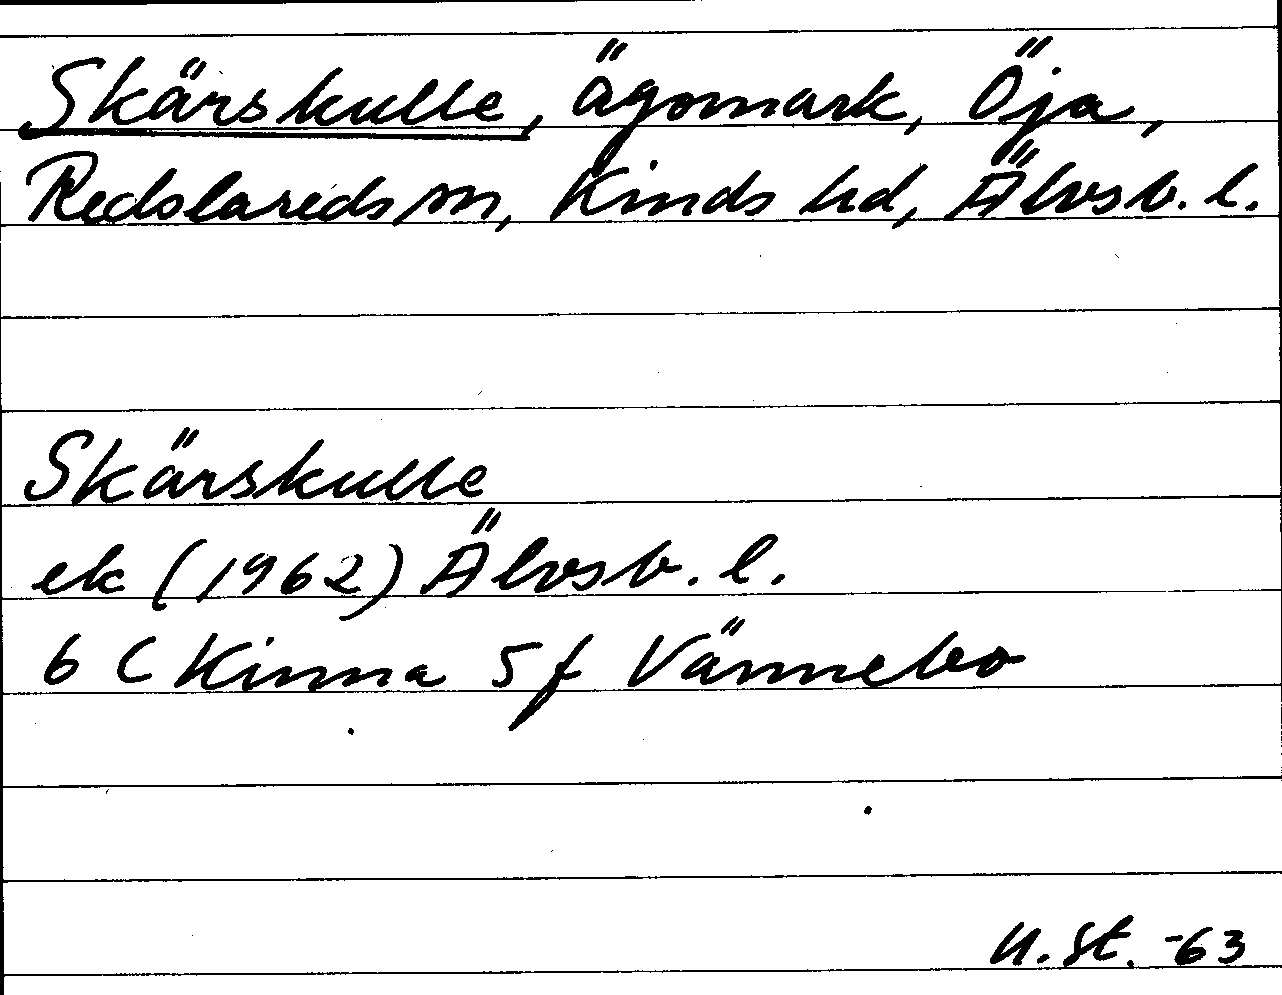 Skärskulle, ägomark, Öja,
Redslareds sn, Kinds hd, Älvsb. l.
Skärskulle
ek (1962) Älvsb. l.
6 C Kinna 5 f Vännebo
U. St. -63